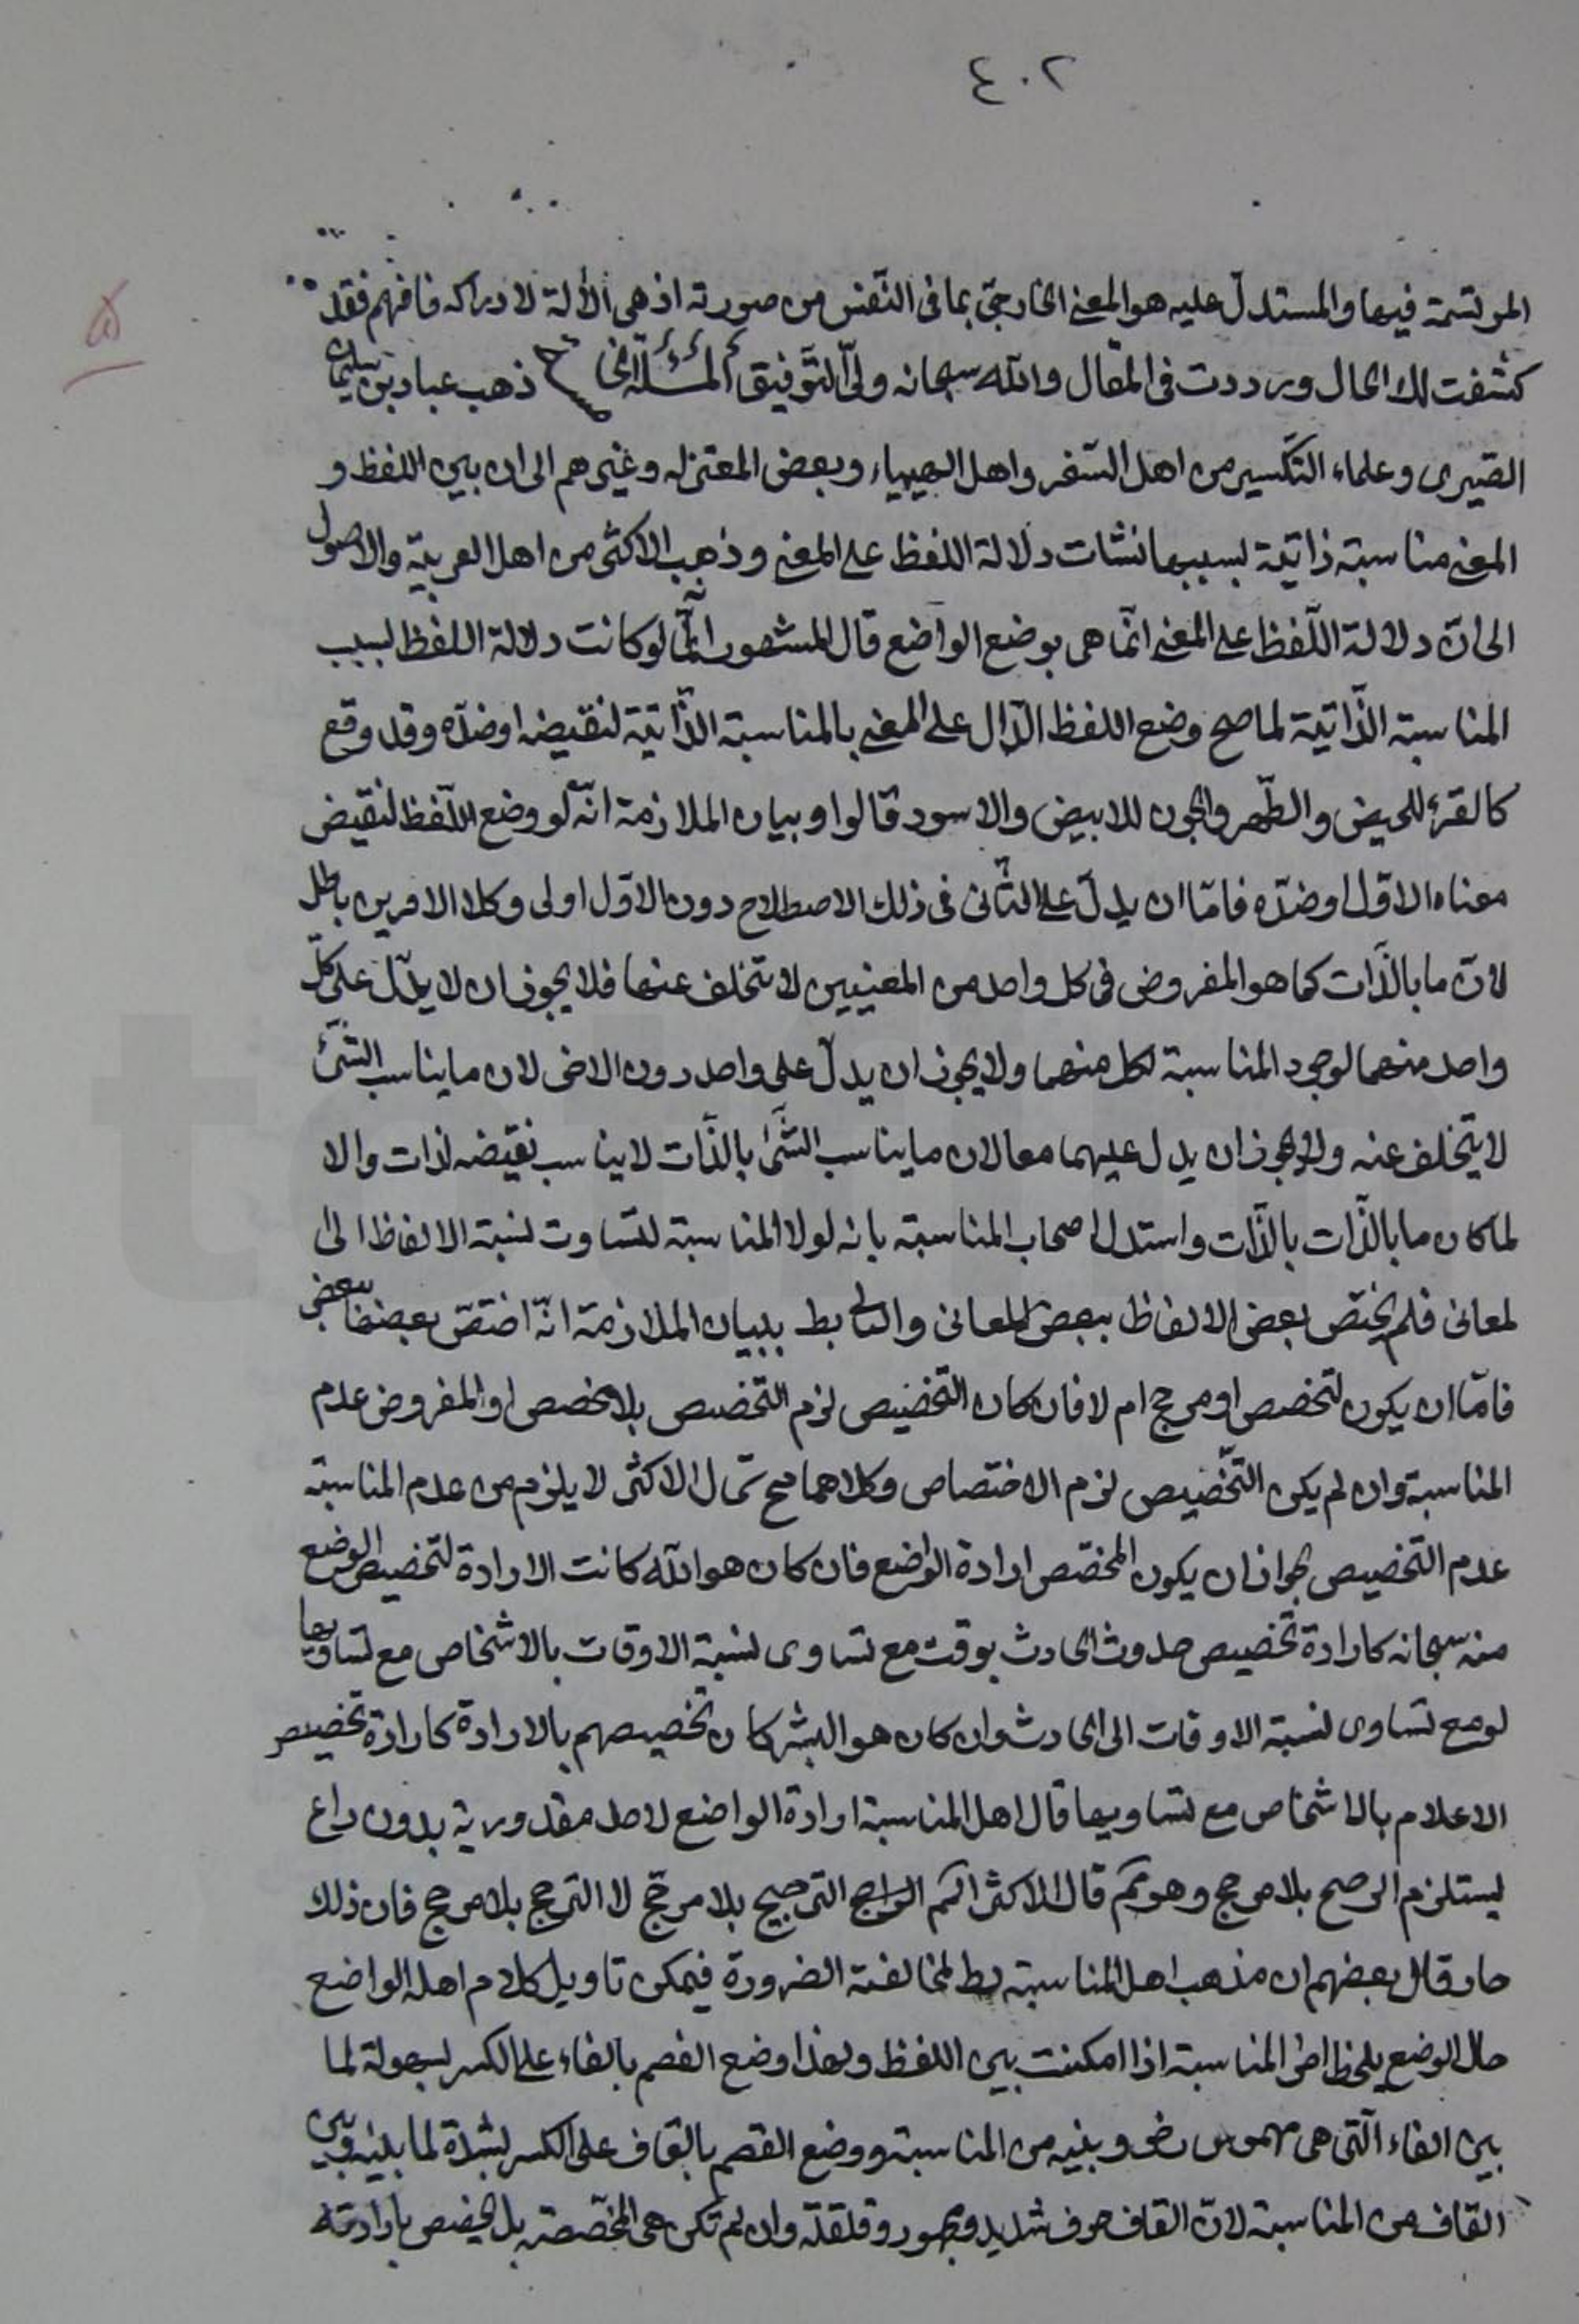 ٤٠٢
المرتسمة فيها والمستدل عليه هو المعنى الخارجيّ بما فى النّفس من صورته اذ هى الألة لادراكه فافهم فقد
كشفت لك الحال ورددت فى المقال والله سبحانه ولىّ التّوفيق المسئلة ذهب عباد بن سليمان
الصّيمرى وعلماء التكّسير من اهل الجفر واهل السيمياء وبعض المعتزله وغيرهم الى ان بين اللفظ و
المعنى مناسبة ذاتيّة بسببها نشات دلالة اللفظ على المعنى وذهب الاكثر من اهل العربيّة والاصول
الى انّ دلالة اللّفظ على المعنى انّما هى بوضع الواضع قال المشهور انّه لو كانت دلالة اللفظ لسبب
المناسبة الذّاتيّة لما صح وضع اللفظ الدّال على المعنى بالمناسبة الذّاتيّة لنقيضه او ضدّه وقد وقع
كالقرء للحيض والطّهر والجون للابيض والاسود قالوا وبيان الملازمة انّه لو وضع اللّفظ لنقيض
معناه الاوّل او ضدّه فامّا ان يدلّ على الثّانى فى ذلك الاصطلاح دون الاوّل اولى وكلا الامرين باطل
لانّ ما بالذّات كما هو المفروض فى كل واحد من المعنيين لا تتخلف عنها فلا يجوز ان لا يدلّ على كلّ
واحد منهما لوجود المناسبة لكل منهما ولا يجوز ان يدلّ على واحد دون الاخر لان ما يناسب الشّئ
لا يتخلف عنه ولا يجوز ان يدل عليهما معا لان ما يناسب الشّئ بالذّات لا يناسب نقيضه لذات والا
لما كان ما بالذّات بالذّات واستدل اصحاب المناسبة بانه لولا المناسبة لتساوت نسبة الالفاظ الى
لمعانى فلم يختص بعض الالفاظ ببعض المعانى والتالى بط بيان الملازمة انّه اختصّ بعضها ببعض
فامّا ان يكون لتخصص او مرجح ام لا فان كان التخصيص لزم التّخصص بلا مخصص او المفروض عدم
المناسبة وان لم يكن التّخصيص لزم الاختصاص وكلاهما مح قال الاكثر لا يلزم من عدم المناسبة
عدم التخصيص لجواز ان يكون المخصّص ارادة الواضع فان كان هو الله كانت الارادة لتخصيص الوضع
منه سبحانه كارادة تخصيص حدوث الحادث بوقت مع تساوى نسبة الاوقات بالاشخاص مع تساويها
لو مع تساوى نسبة الاوقات الى الحادث وان كان هو البشر كان تخصيصهم بالارادة كارادة تخصيص
الاعلام بالاشخاص مع تساويها قال اهل المناسبة ارادة الواضع لاحد مقدوريه بدون داع
يستلزم الرجح بلا مرجح وهو مح قال الاكثر الراجح الترجيح بلا مرجّح لا الترجح بلا مرجح فان ذلك
جاز وقال بعضهم ان مذهب اهل المناسبة بط لمخالفة الضرورة فيمكن تاويل كلام اهل الواضع
حال الوضع يلحظ المناسبة اذا امكنت بين اللفظ ولهذا وضع الفصم بالفاء على الكسر بسهولة لما
بين الفاء الّتى هى مهموس رخو وبينه من المناسبة ووضع القصم بالقاف على الكسر بشدة لما بينه وبين
القاف من المناسبة لانّ القاف حرف شديد ومجهور وقلقلة وان لم تكن هى المخصّصة بل المخصص بارادته